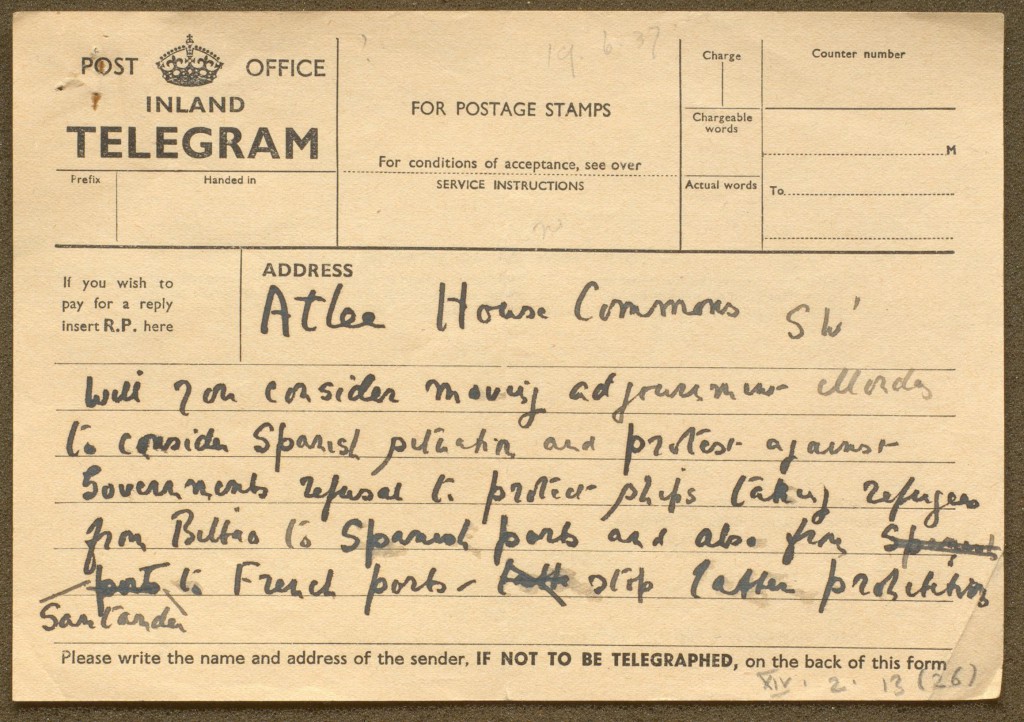 19. 6. 37
POST OFFICE
INLAND
TELEGRAM
Prefix
Handed in
FOR POSTAGE STAMPS
For conditions of acceptance, see over
SERVICE INSTRUCTIONS
Charge
Chargeable words
Actual words
Counter number
M
To
If you wish to
pay for a reply
insert R.P. here
ADDRESS
Atlee House Commons SW1
Will you consider moving adjournment Monday
to consider Spanish situation and protest against
Governments refusal to protect ships taking refugees
from Bilbao to Spanish ports and also from Spanish
ports to French ports - stop latter prohibition
Santander
Please write the name and address of the sender, IF NOT TO BE TELEGRAPHED, on the back of this form
XIV. 2. 13 (26)